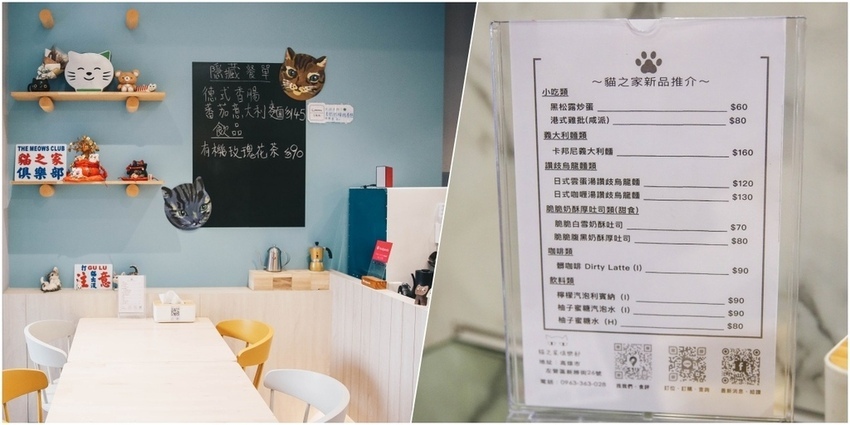 隱藏餐單
德式香腸
番茄意大利麵 $145
飲品
有機玫瑰花茶 $90
THE MEOWS CLUB
貓之家
俱樂部
GU LU
注意
~貓之家新品推介~
小吃類
黑松露炒蛋 $60
港式雞批(咸派) $80
義大利麵類
卡邦尼義大利麵 $160
讚歧烏龍麵類
日式雲蛋湯讚歧烏龍麵 $120
日式咖喱湯讚歧烏龍麵 $130
脆脆奶酥厚吐司類(甜食)
脆脆白雪奶酥吐司 $70
脆脆腹黑奶酥厚吐司 $80
咖啡類
髒咖啡 Dirty Latte (I) $90
飲料類
檸檬汽泡利賓納 (I) $90
柚子蜜糖汽泡水 (I) $90
柚子蜜水 (H) $80
地址：高雄市
電話：0963-363-028